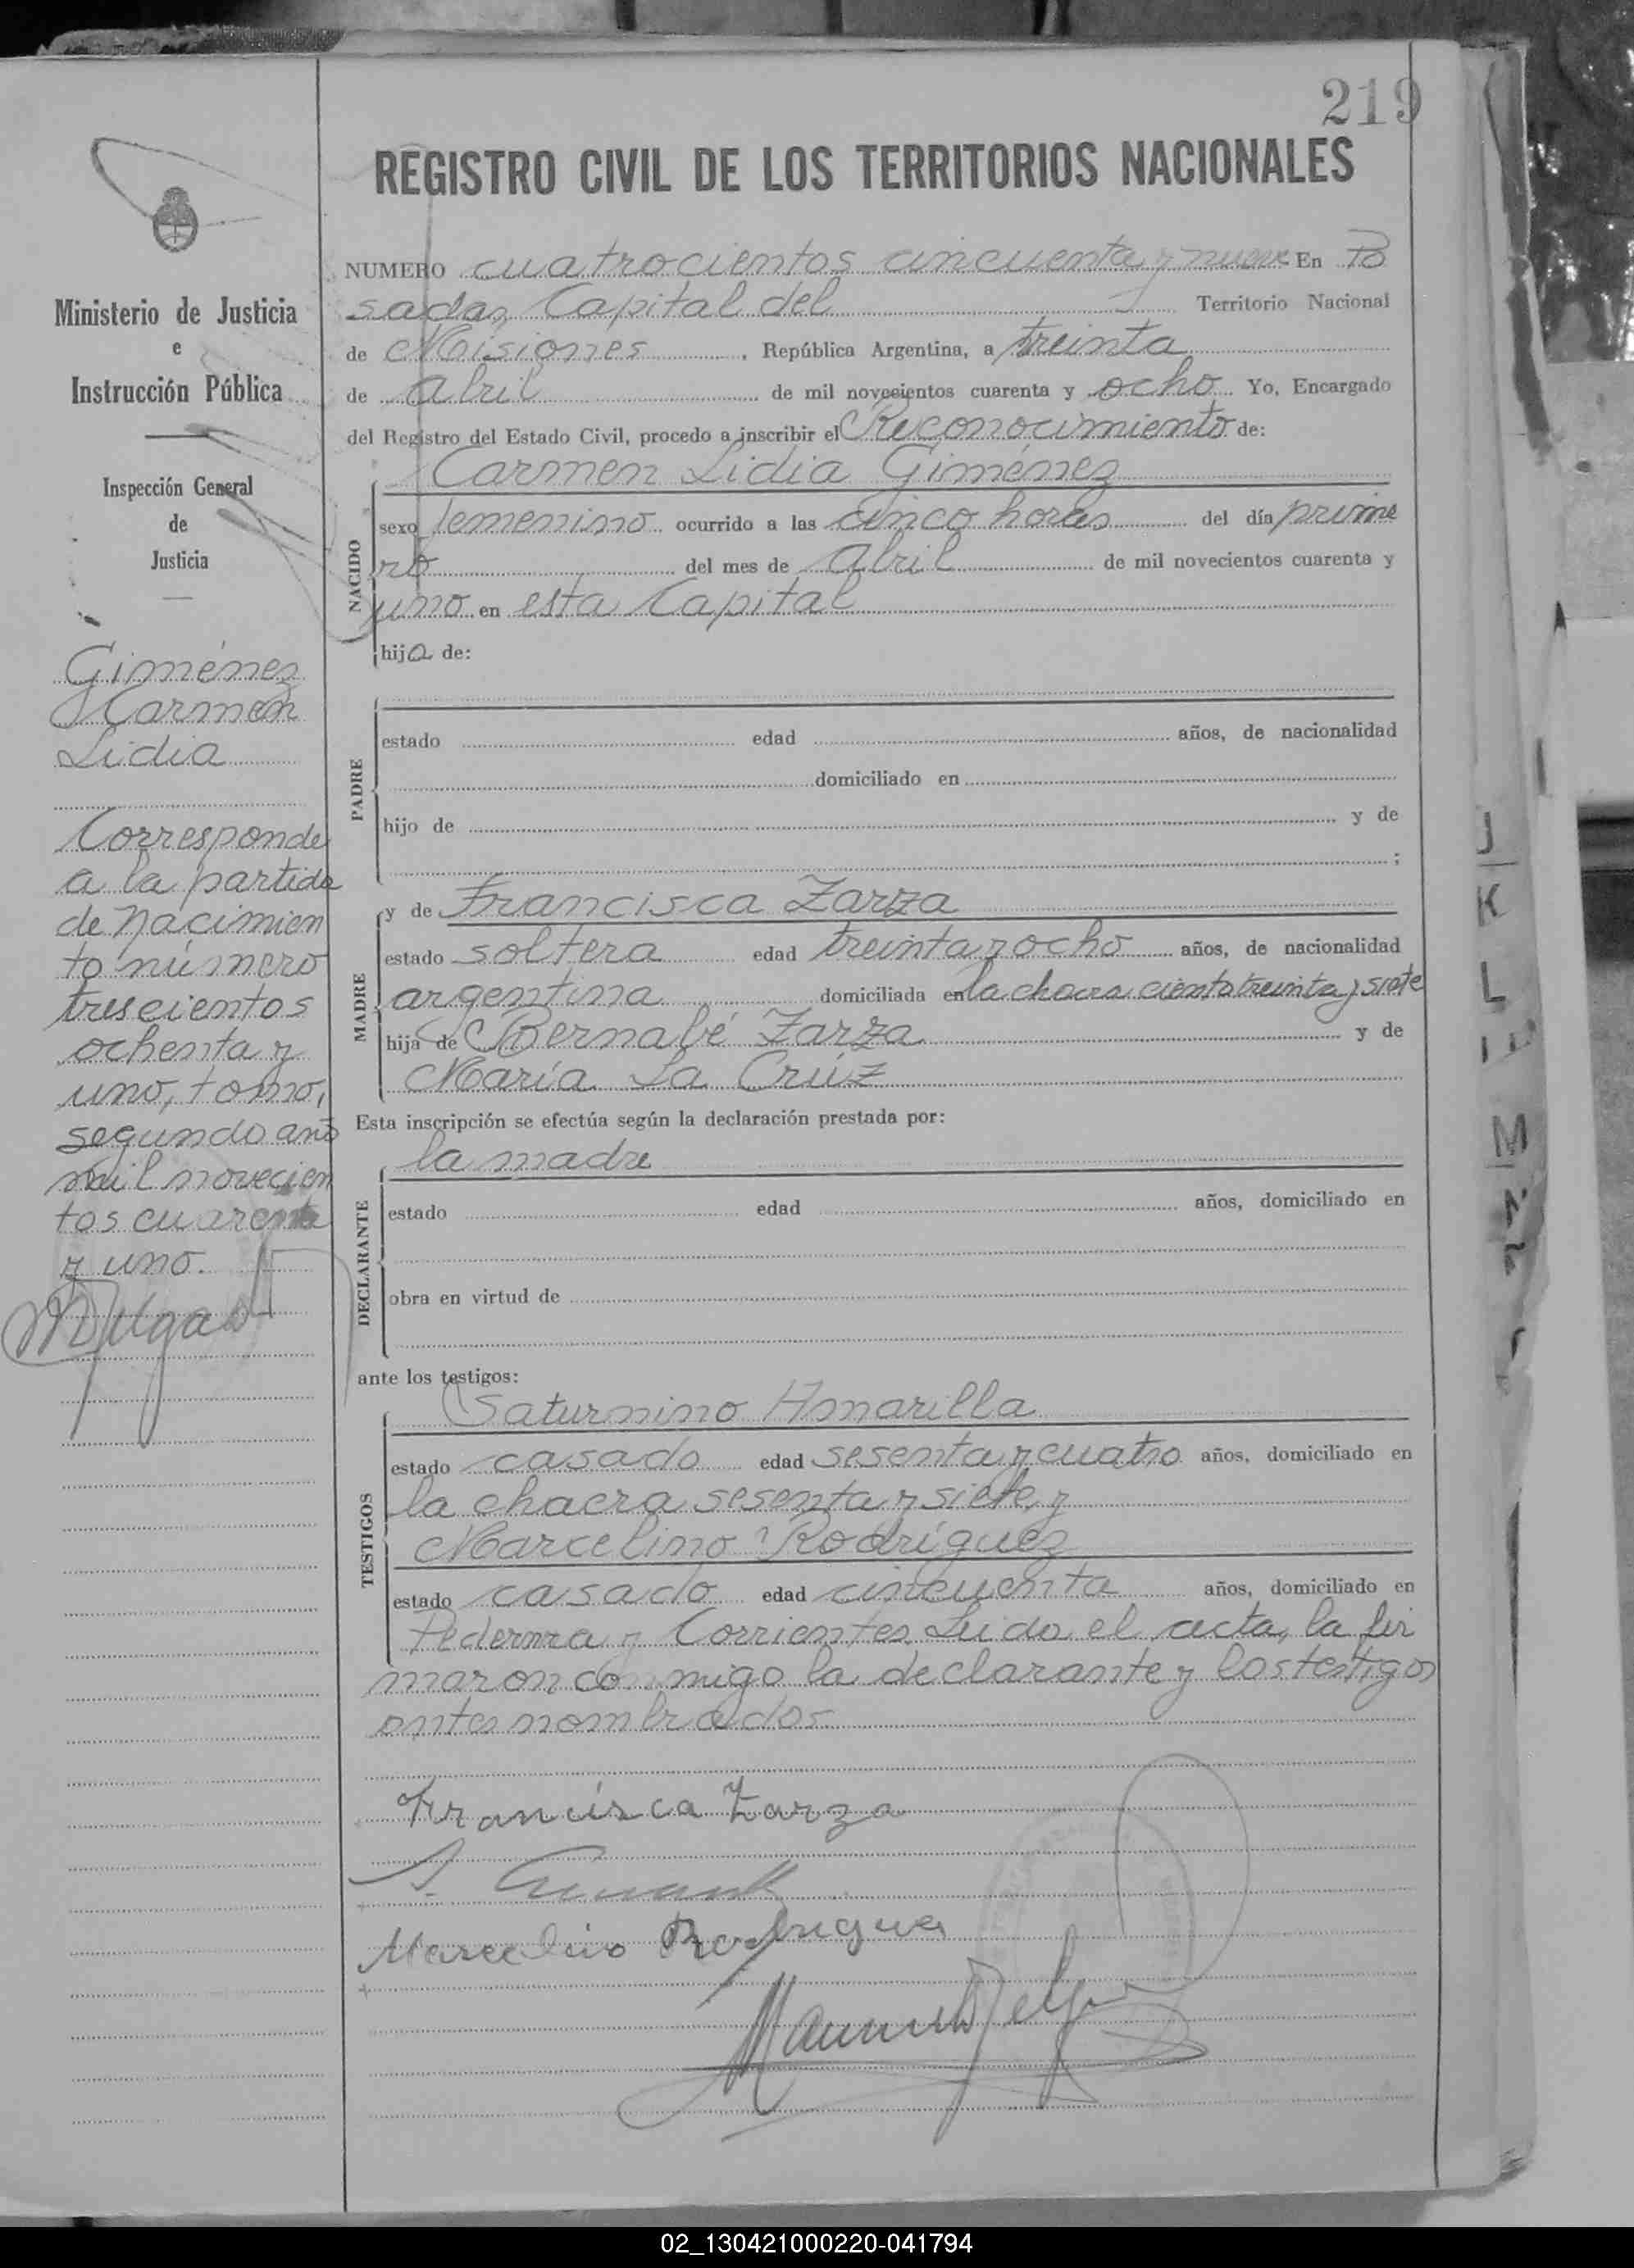 219
REGISTRO CIVIL DE LOS TERRITORIOS NACIONALES
Ministerio de Justicia
e
Instrucción Pública
Inspección General
de
Justicia
Giménez
Carmen
Lidia
Corresponde
a la partida
de nacimien
to número
trescientos
ochenta y
uno, tomo,
segundo año
mil novecien
tos cuarenta
y uno.
NUMERO cuatrocientos cincuenta y nueve En Po
sadas Capital del Territorio Nacional
de Misiones, República Argentina, a treinta
de abril de mil novecientos cuarenta y ocho Yo, Encargado
del Registro del Estado Civil, procedo a inscribir el Reconocimiento de:
Carmen Lidia Giménez
NACIDO
sexo femenino ocurrido a las cinco horas del día prime
ro del mes de abril de mil novecientos cuarenta y
uno en esta Capital
hija de:
PADRE
estado edad años, de nacionalidad
domiciliado en
hijo de y de
;
MADRE
y de Francisca Zarza
estado soltera edad treinta y ocho años, de nacionalidad
argentina domiciliada en la chacra ciento treinta y siete
hija de Bernabé Zarza y de
María La Crúz
Esta inscripción se efectúa según la declaración prestada por:
la madre
DECLARANTE
estado edad años, domiciliado en
obra en virtud de
ante los testigos:
Saturnino Amarilla
TESTIGOS
estado casado edad sesenta y cuatro años, domiciliado en
la chacra sesenta y siete, y
Marcelino Rodríguez
estado casado edad cincuenta años, domiciliado en
Pedernera y Corrientes. Leida el acta, la fir
maron conmigo la declarante y los testigos
antes nombrados
Francisca Zarza
Marcelino Rodriguez
J
K
L
M
N
02_130421000220-041794